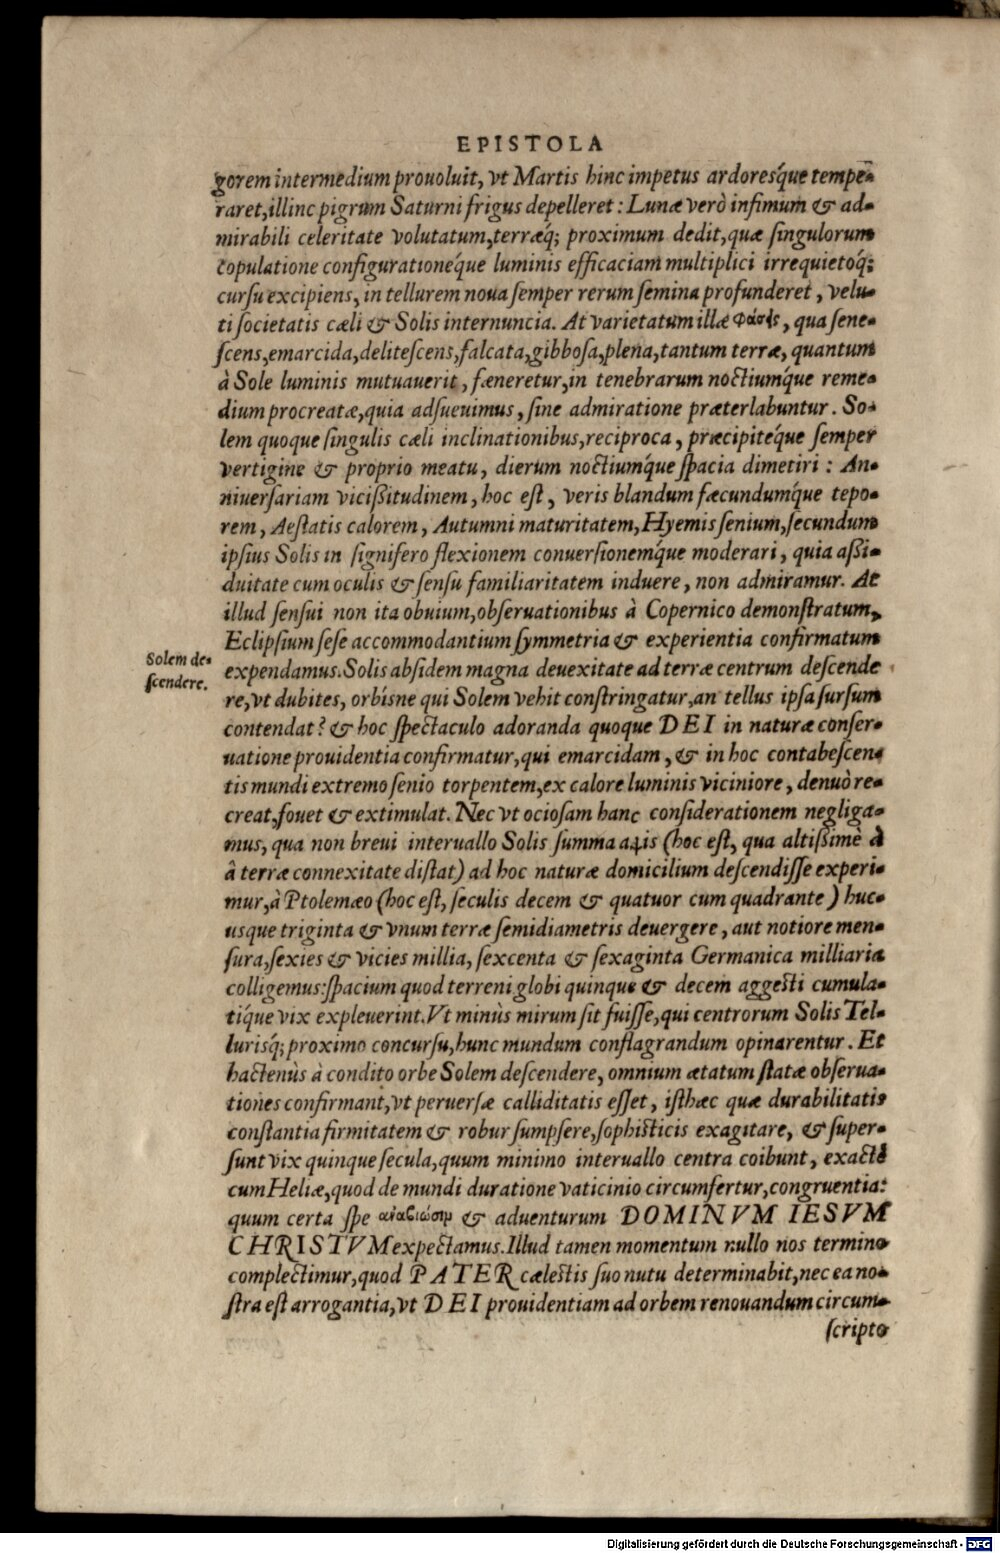 EPISTOLA
gorem intermedium prouoluit, vt Martis hinc impetus ardoresq́ue tempe-
raret, illinc pigrum Saturni frigus depelleret: Lunæ verò infimum & ad-
mirabili celeritate volutatum, terræq́; proximum dedit, quæ ſingulorum
copulatione configurationeq́ue luminis efficaciam multiplici irrequietoq́;
curſu excipiens, in tellurem noua ſemper rerum ſemina profunderet, velu-
ti ſocietatis cæli & Solis internuncia. At varietatum illæ Φάσις, qua ſene-
ſcens, emarcida, deliteſcens, falcata, gibboſa, plena, tantum terræ, quantum
à Sole luminis mutuauerit, fœneretur, in tenebrarum noctiumq́ue reme-
dium procreatæ, quia adſueuimus, ſine admiratione præterlabuntur. So-
lem quoque ſingulis cæli inclinationibus, reciproca, præcipiteq́ue ſemper
vertigine & proprio meatu, dierum noctiumq́ue ſpacia dimetiri: An-
niuerſariam viciſsitudinem, hoc eſt, veris blandum fæcundumq́ue tepo-
rem, Aeſtatis calorem, Autumni maturitatem, Hyemis ſenium, ſecundum
ipſius Solis in ſignifero flexionem conuerſionemq́ue moderari, quia aſsi-
duitate cum oculis & ſenſu familiaritatem induere, non admiramur. At
illud ſenſui non ita obuium, obſeruationibus à Copernico demonſtratum,
Eclipſium ſeſe accommodantium ſymmetria & experientia confirmatum
Solem de-
ſcendere.
expendamus. Solis abſidem magna deuexitate ad terræ centrum deſcende
re, vt dubites, orbisne qui Solem vehit conſtringatur, an tellus ipſa ſurſum
contendat? & hoc ſpectaculo adoranda quoque DEI in naturæ conſer-
uatione prouidentia confirmatur, qui emarcidam, & in hoc contabeſcen-
tis mundi extremo ſenio torpentem, ex calore luminis viciniore, denuò re-
creat, fouet & extimulat. Nec vt ocioſam hanc conſiderationem negliga-
mus, qua non breui interuallo Solis ſumma αψις (hoc eſt, qua altiſsimè à
à terræ connexitate diſtat) ad hoc naturæ domicilium deſcendiſſe experi-
mur, à Ptolemæo (hoc eſt, ſeculis decem & quatuor cum quadrante) huc-
usque triginta & vnum terræ ſemidiametris deuergere, aut notiore men-
ſura, ſexies & vicies millia, ſexcenta & ſexaginta Germanica milliaria
colligemus: ſpacium quod terreni globi quinque & decem aggeſti cumula-
tiq́ue vix expleuerint. Vt minùs mirum ſit fuiſſe, qui centrorum Solis Tel-
lurisq́; proximo concurſu, hunc mundum conflagrandum opinarentur. Et
hactenùs à condito orbe Solem deſcendere, omnium ætatum ſtatæ obſerua-
tiones confirmant, vt peruerſæ calliditatis eſſet, iſthæc quæ durabilitatis
conſtantia firmitatem & robur ſumpſere, ſophiſticis exagitare, & ſuper-
ſunt vix quinque ſecula, quum minimo interuallo centra coibunt, exactè
cum Heliæ, quod de mundi duratione vaticinio circumfertur, congruentia:
quum certa ſpe αναβιώσιμ & aduenturum DOMINVM IESVM
CHRISTVM expectamus. Illud tamen momentum nullo nos termino
complectimur, quod PATER cæleſtis ſuo nutu determinabit, nec ea no-
ſtra eſt arrogantia, vt DEI prouidentiam ad orbem renouandum circum-
ſcripto
Digitalisierung gefördert durch die Deutsche Forschungsgemeinschaft - DFG